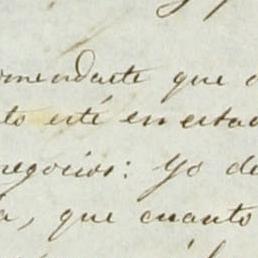 omendarte que
to esté en esta
negocios: Yo de
a, que cuanto